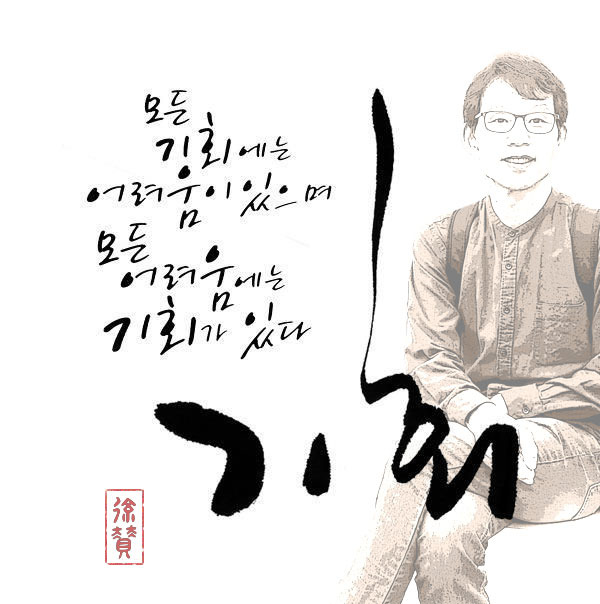 모든
기회에는
어려움이 있으며
모든
어려움에는
기회가 있다
기회
徐
賛